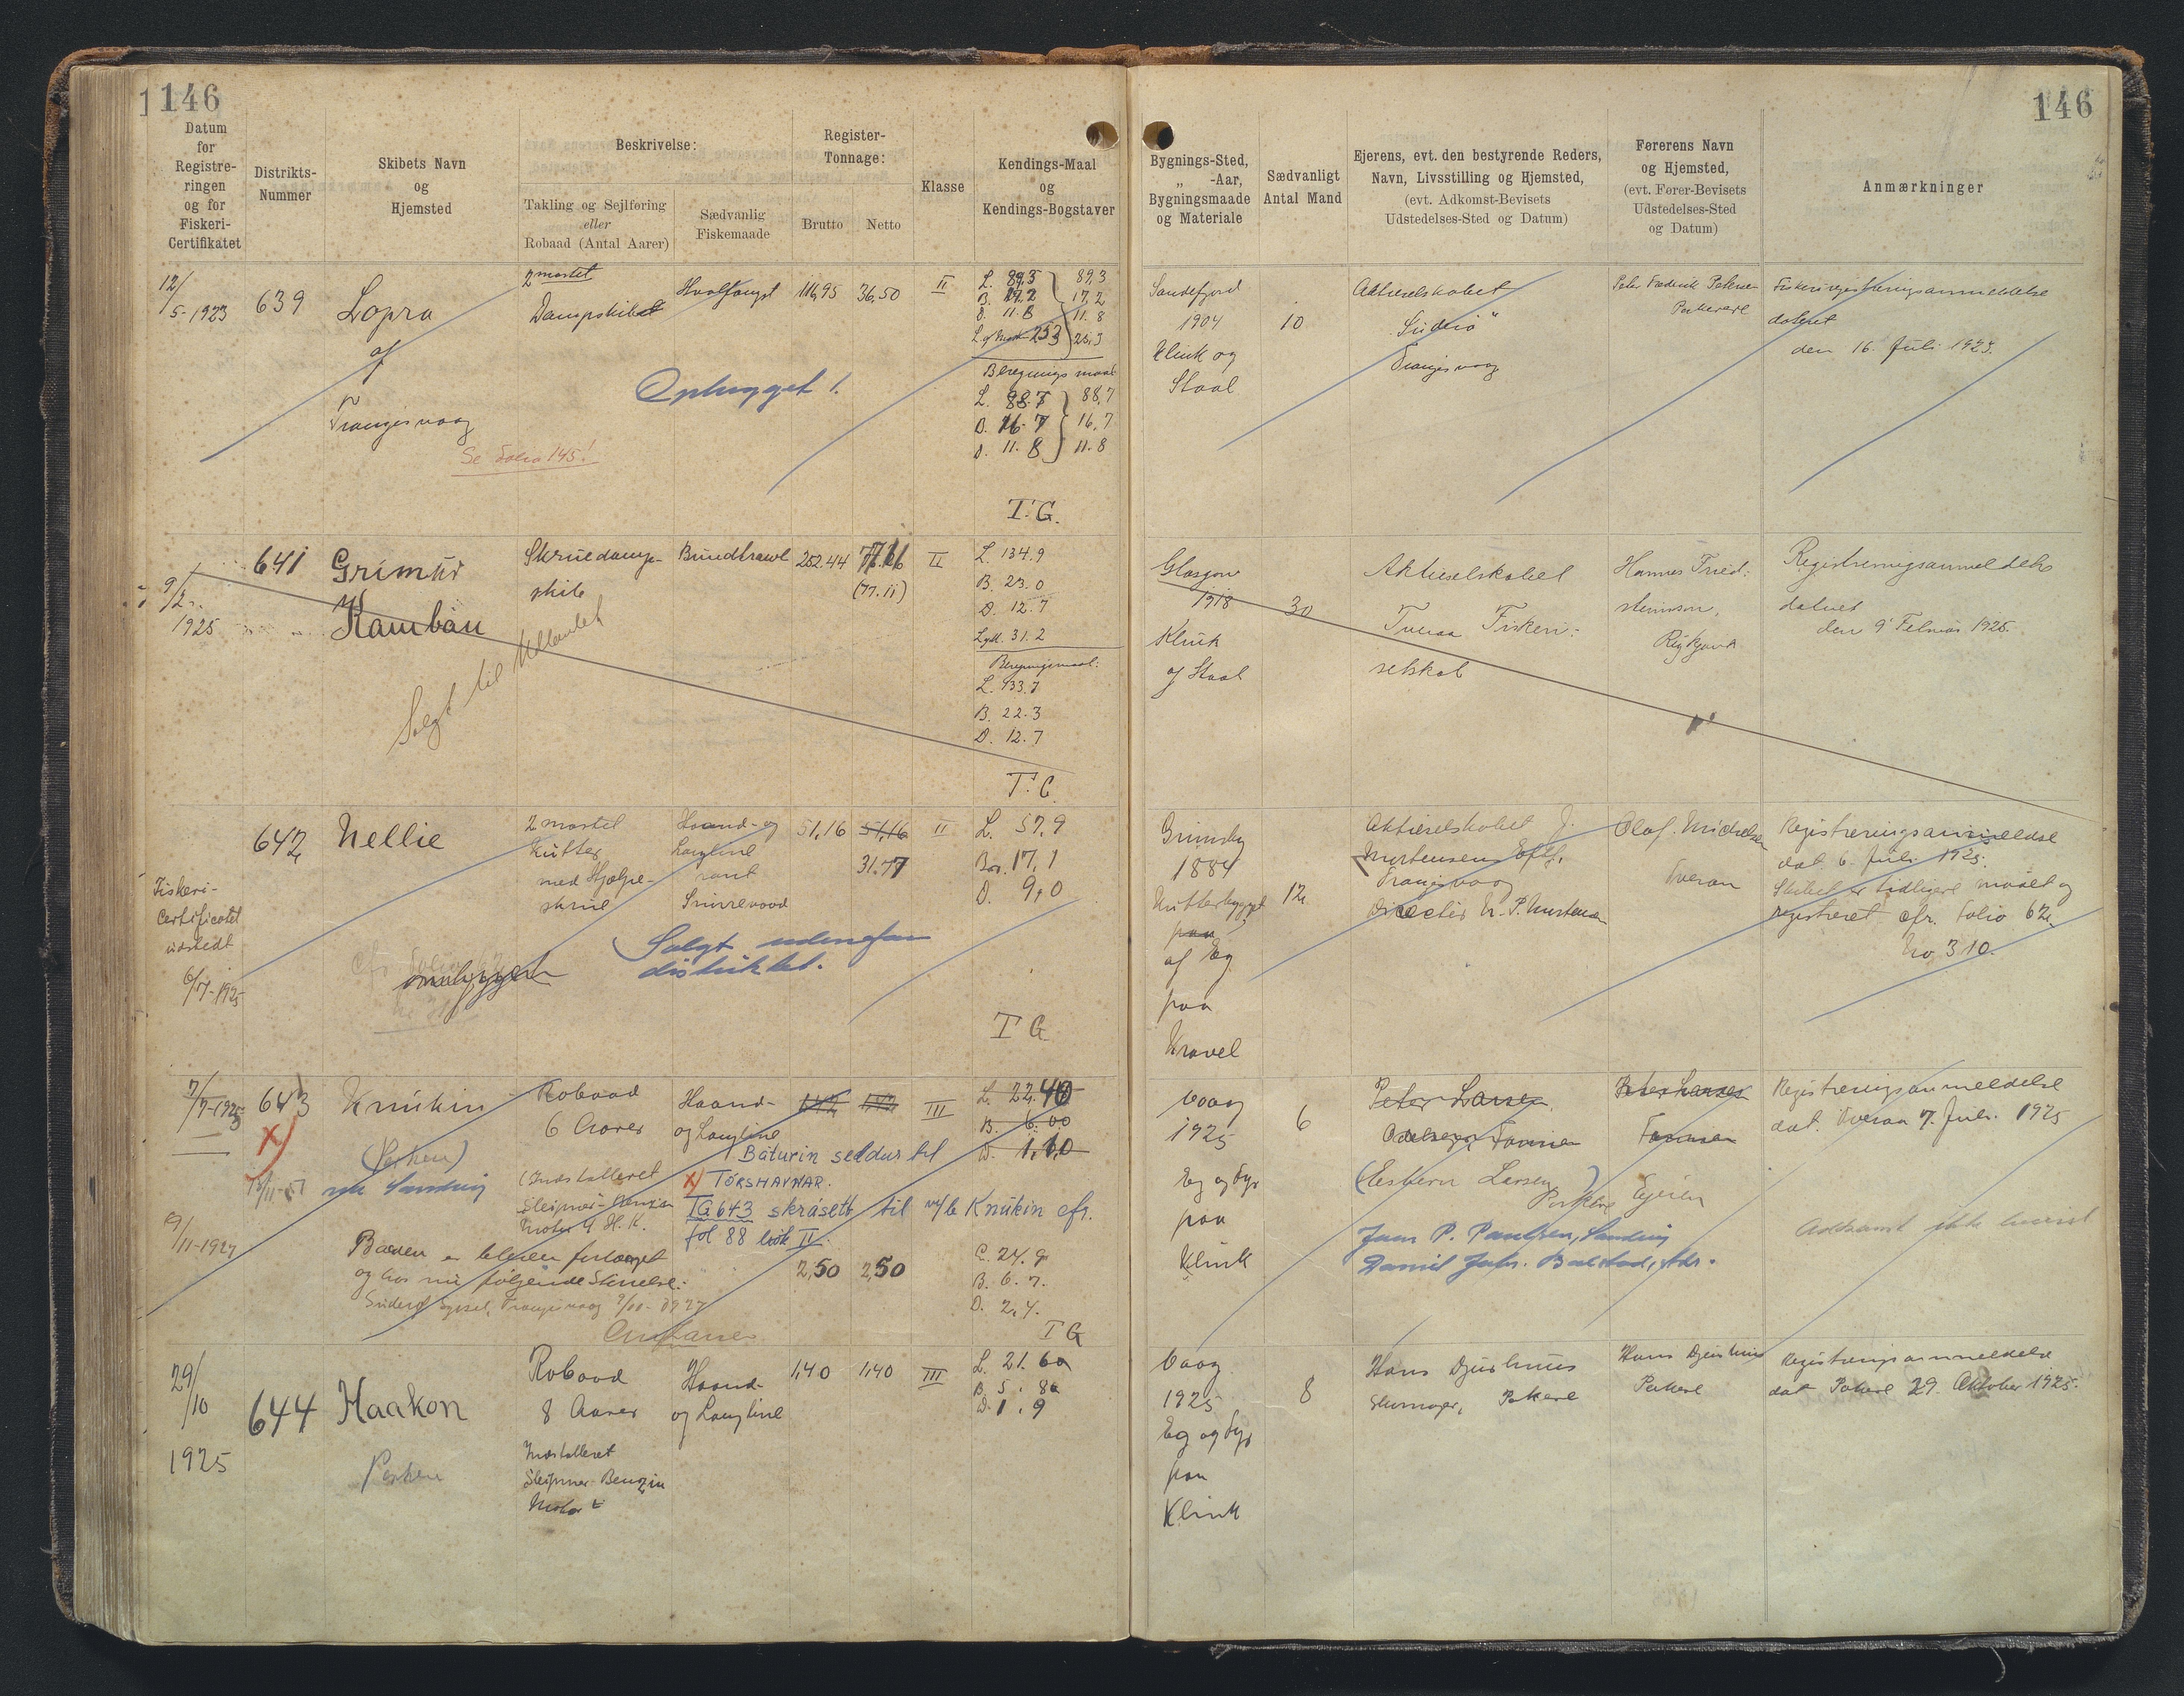 146
146
Datum
for
Registre-
ringen
og for
Fiskeri-
Certifikatet
Distrikts-
Nummer
Skibets Navn
og
Hjemsted
Beskrivelse:
Takling og Sejlføring
eller
Robaad (Antal Aarer)
Sædvanlig
Fiskemaade
Register-
Tonnage:
Brutto
Netto
Klasse
Kendings-Maal
og
Kendings-Bogstaver
Bygnings-Sted,
„ -Aar,
Bygningsmaade
og Materiale
Sædvanligt
Antal Mand
Ejerens, evt. den bestyrende Reders,
Navn, Livsstilling og Hjemsted,
(evt. Adkomst-Bevisets
Udstedelses-Sted og Datum)
Førerens Navn
og Hjemsted,
(evt. Fører-Bevisets
Udstedelses-Sted
og Datum)
Anmærkninger
12/
5-1923
639
Lopra
af
Trangisvaag
Se Folio 145!
2 mastet
Dampskibet
Hvalfangst
116,95
36,50
II
L. 89,3
B. 17.2
D. 11.8
25,3
89,3
17,2
11.8
25,3
Beregnings maal
L. 88.7
B. 16.7
D. 11.8
88,7
16,7
11.8
Ophugget!
T.G.
Sandefjord
1904
Klink og
Staal
10
Aktieselskabet
"Suderø"
Trangisvaag
Peter Frederik Petersen
Porkere
dateret
den 16. Juli 1923.
9/2
1925
641
Grimur
Kamban
Skruedamp-
skib
Bundtrawl
252.44
77.11
(77.11)
II
L. 134.9
B. 23.0
D. 12.7
31.2
Beregningsmaal:
L. 133.7
B. 22.3
D. 12.7
T.G.
Solgt til Udlandet
Glasgow
1918
Klink
af Staal
30
Aktieselskabet
Tveraa Fiskeri-
selskab
Hannes Frid-
steinsson,
Reykjavik
Registreringsanmeldelse
dateret
den 9' Februar 1925.
642
Nellie
Fiskeri-
Certificatet
udstedt
6/7-1925
ombygget
2 mastet
Kutter
med Hjælpe-
skrue
Haand- og
Langline
samt
Snurrevaad
51,16
51,16
31.77
II
L. 57,9
Br. 17,1
D. 9,0
Solgt udenfor
distriktet.
T G
Grimsby
1884
Kutterbygget
paa
af Eg
paa
Kravel
12
Aktieselskabet J.
Mortensens Eftf.
Trangisvaag
Directør N. P. Mortensen
Olaf. Michelsen
Tveraa
Registreringsanmeldelse
dat. 6. Juli 1925.
Skibet er tidligere maalt og
registreret cfr. Folio 62
No. 310.
7/7-1925
643
x)
Knúkin
(Porkere)
nú Sandvig
Robaad
6 Aarer
Haand-
og Langline
III
L. 22.40
B. 6.00
D. 1.10
(Installeret
Sleipner-Benzin
Motor 4 H.K.
Báturin seldur til
x) TÓRSHAVNAR.
TG 643 skrásett til m/b Knúkin cfr.
fol 88 bók II.
9/11-1927
Baaden er bleven forlænget
og har nu følgende Størrelse:
2,50
2,50
L. 24.9
B. 6.7.
D. 2,4.
T G
Vaag
1925
Eg og Fyr
paa
Klink
6
Peter Larsen
(Esbern Larsen)
Porkere
Jens P. Poulsen, Sandvig
Peter Larsen
Ejeren
Registreringsanmeldelse
dat. Tveraa 7. Juli 1925
Adkomst ikke bevist
29/10
1925
644
Haakon
Porkere
Robaad
8 Aarer
Installeret
Sleipner-Benzin
Motor
Haand-
og Langline
1,40
1,40
III
L. 21.60
B. 5.80
D. 1.9
Vaag
1925
Eg og Fyr
paa
Klink
8
Hans Djurhuus
Porkere
Hans Djurhuus
Porkere
Registreringsanmeldelse
dat Porkere 29. Oktober 1925.